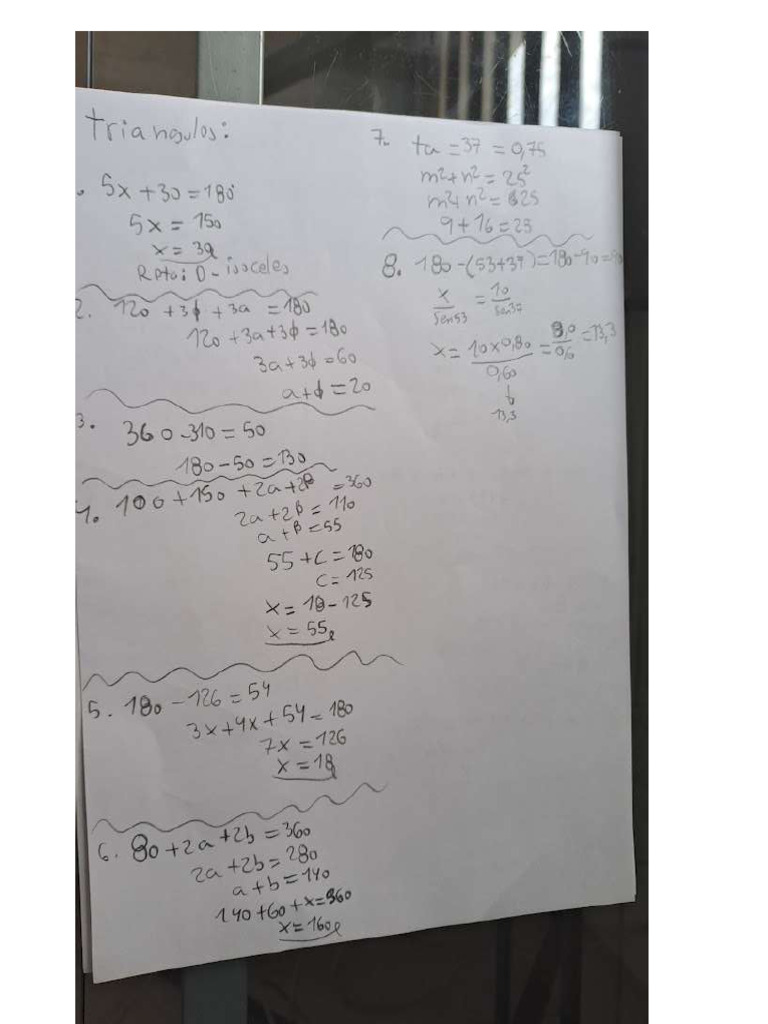 triangulos:
5x + 30 = 180
5x = 150
x = 30
Rpta: D - isoceles
2. 120 + 3ϕ + 3a = 180
120 + 3a + 3ϕ = 180
3a + 3ϕ = 60
a + ϕ = 20
3. 360 - 310 = 50
180 - 50 = 130
4. 100 + 150 + 2a + 2β = 360
2a + 2β = 110
a + β = 55
55 + C = 180
C = 125
x = 18 - 125
x = 55
5. 180 - 126 = 54
3x + 4x + 54 = 180
7x = 126
x = 18
6. 80 + 2a + 2b = 360
2a + 2b = 280
a + b = 140
140 + 60 + x = 360
x = 160
7. ta = 37 = 0,75
m² + n² = 25²
m² + n² = 625
9 + 16 = 25
8. 180 - (53 + 37) = 180 - 90 = 90
x/sen53 = 10/sen37
x = 10 x 0,80/0,60 = 8,0/0,6 = 13,3
13,3